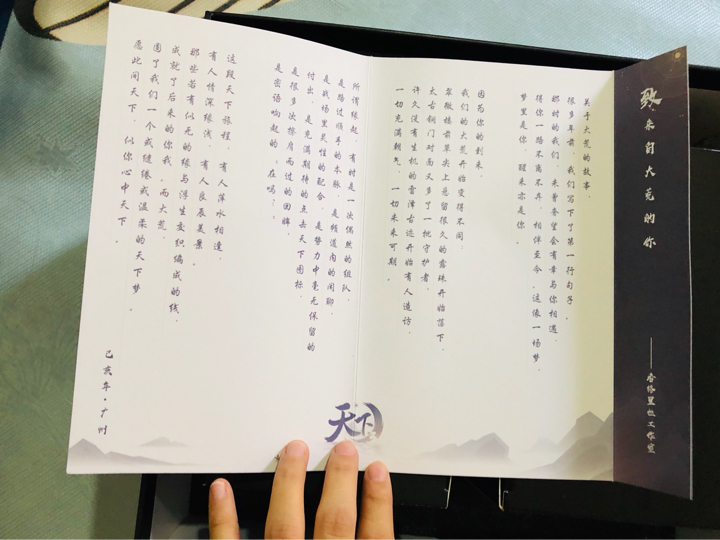 致来自大荒的你
——香格里拉工作室
关于大荒的故事，
很多年前，我们写下了第一行句子，
那时的我们，未曾奢望会有幸与你相遇，
得你一路不离不弃，相伴至今，这像一场梦，
梦里是你，醒来亦是你。
因为你的到来，
我们的大荒开始变得不同：
翠微楼前草尖上悬留很久的露珠开始落下，
太古铜门对面又多了一批守护者，
许久没有生机的雷泽古迹开始有人造访，
一切充满朝气，一切未来可期。
所谓缘起，有时是一次偶然的组队，
是路过顺手的奶脉，是频道内的闲聊，
是战场里灵性的配合，是势力中毫无保留的
付出，是充满期待的点击天下图标，
是很多次擦肩而过的回眸，
是密语响起的：在吗？，
这段天下旅程，有人萍水相逢，
有人情深缘浅，有人良辰美景，
那些若有似无的缘与浮生交织编成的线，
成就了后来的你我，而大荒，
圆了我们一个或缱绻或温柔的天下梦，
愿此间天下，似你心中天下。
己亥年·广州
天下